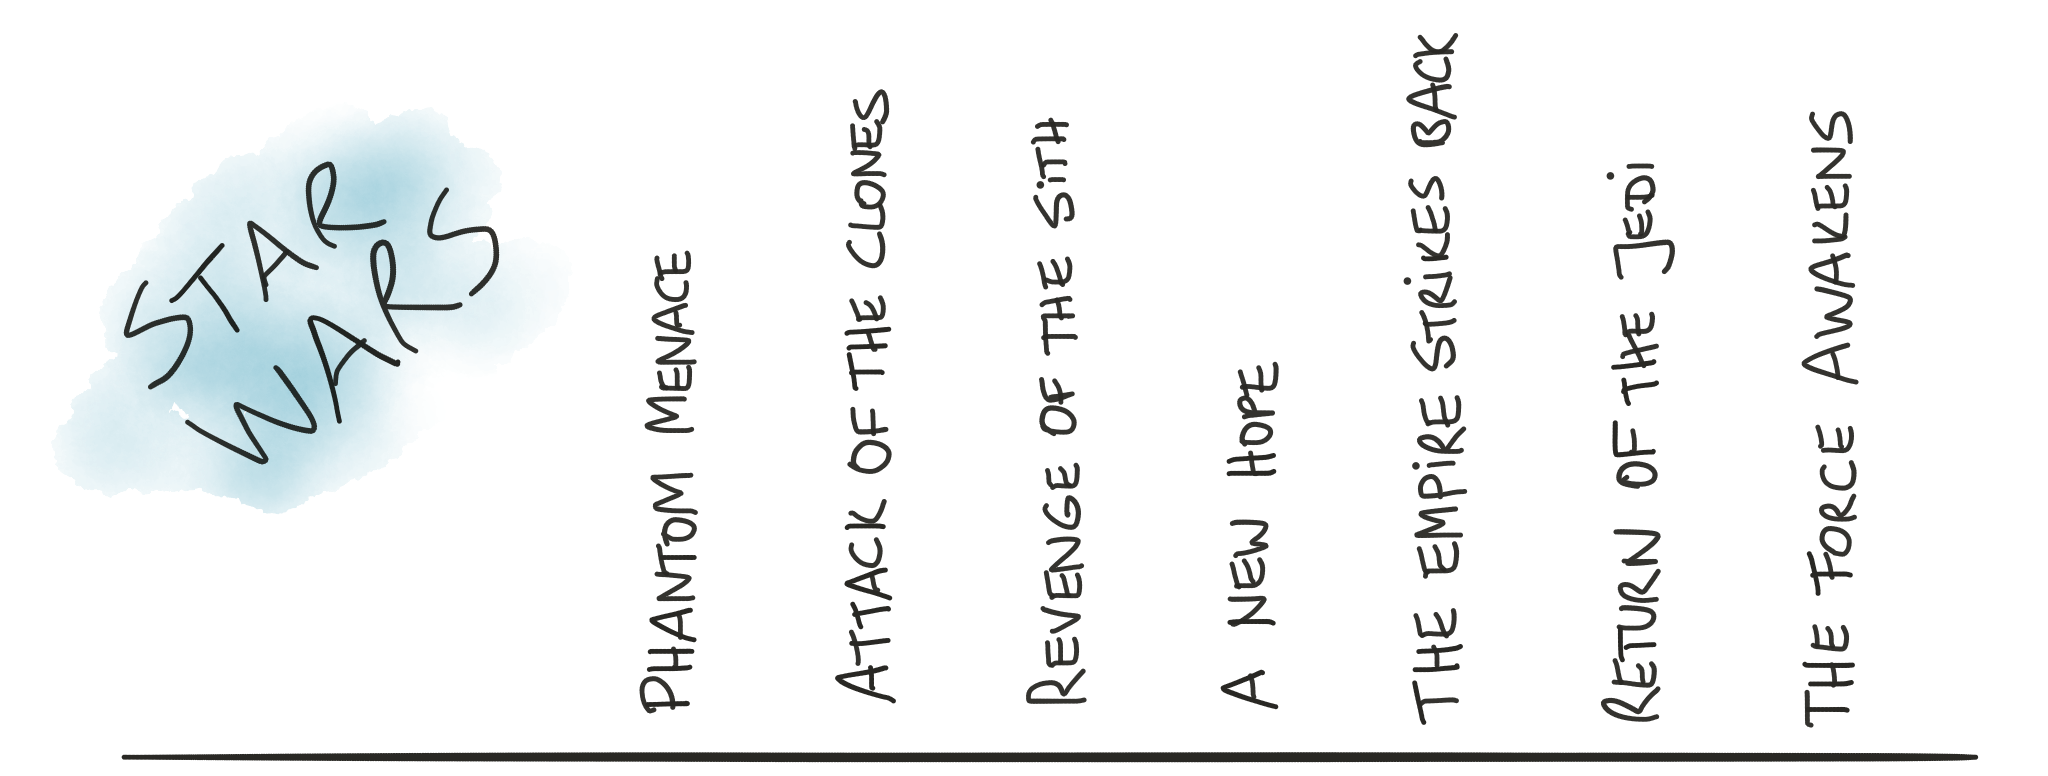 STAR
WARS
PHANTOM MENACE
ATTACK OF THE CLONES
REVENGE OF THE SITH
A NEW HOPE
THE EMPIRE STRIKES BACK
RETURN OF THE JEDI
THE FORCE AWAKENS